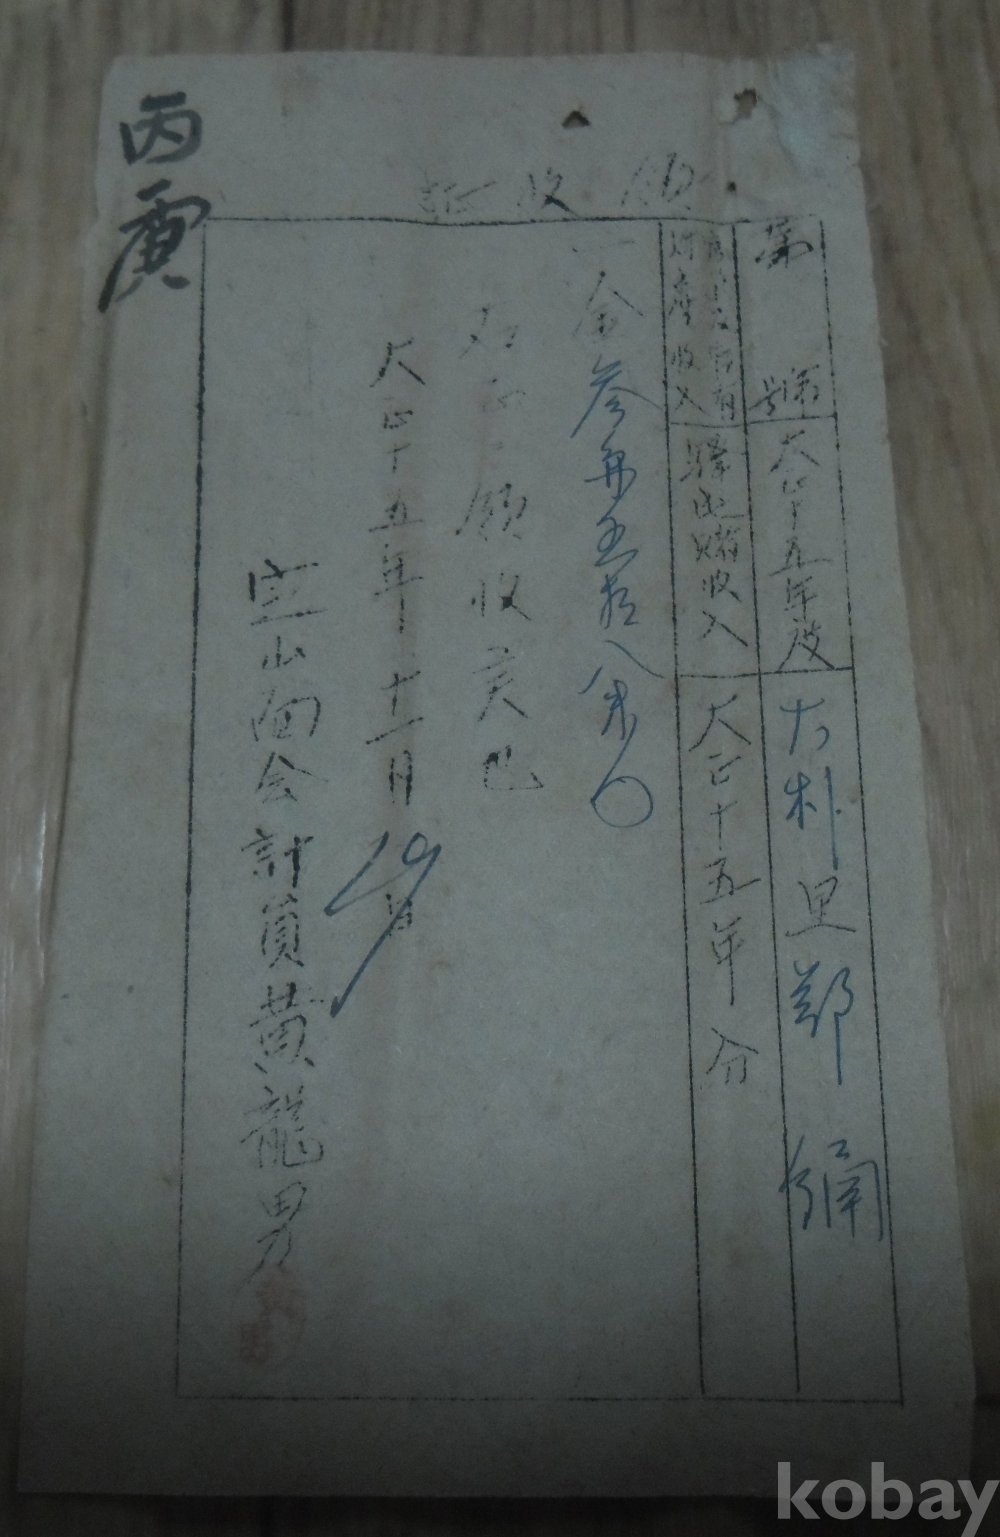 領收証
第 號 大正十五年度 大朴里 鄭
財産收入 驛屯賭收入 大正十五年分
一金參円五拾八戋〇
右正ニ領收候也
大正十五年十一月19日
面会計員黄龍男
丙寅
kobay